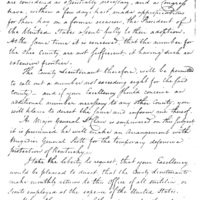 considered as absolutely necessary, and as Congress
have, within a few days past, made appropriations
for them, as on a former occasion, the President of
the United States cannot justify to their adoption.
At the same time it is conceived, that the number for
the Ohio County are not sufficient, it having such an
extensive frontier.
The County Lieutenant therefore, will be permitted
to call out a number not exceeding eight for the said
County - and if your Excellency should conceive an
additional number necessary to any other county, you
will please to direct the same and inform me thereof.
As Major General St Clair is empowered on this subject
it is presumed he will make an arrangement with
Brigadier General Scott for the temporary defensive
protection of Kentucky.
I take the liberty to request, that your Excellency
would be pleased to direct, that the County Lieutenants
make monthly returns to this office of all militia or
scouts employed at the expense of the United States.